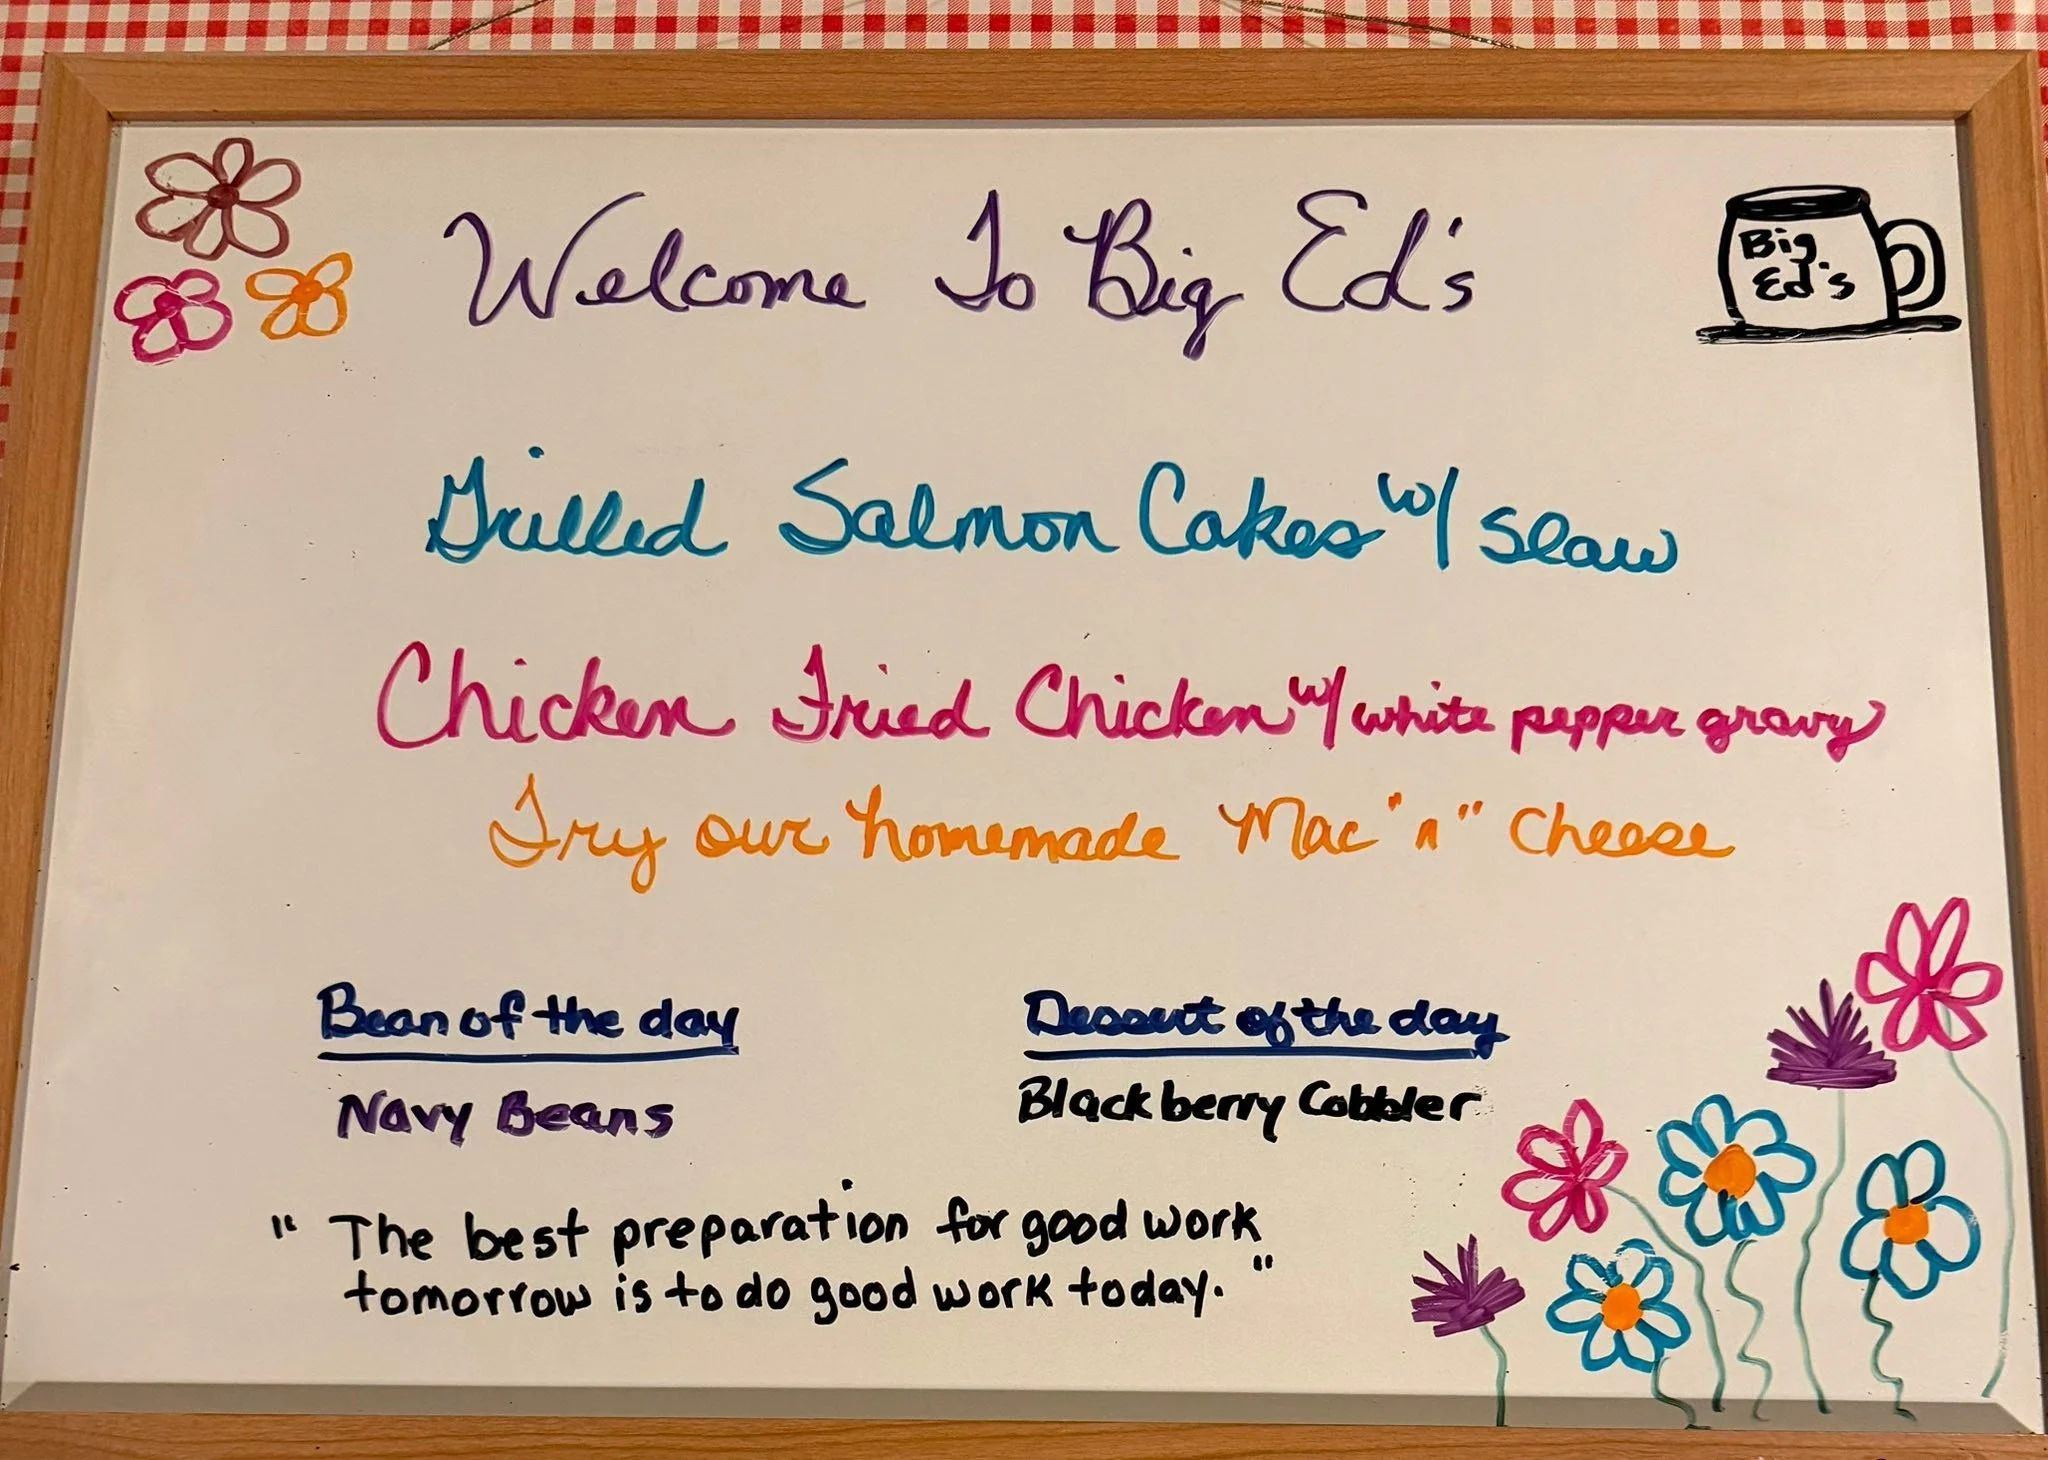 Welcome To Big Ed's
Big
Ed's
Grilled Salmon Cakes w/ Slaw
Chicken Fried Chicken w/ white pepper gravy
Try our homemade Mac "n" Cheese
Bean of the day
Navy Beans
Dessert of the day
Blackberry Cobbler
" The best preparation for good work
tomorrow is to do good work today. "